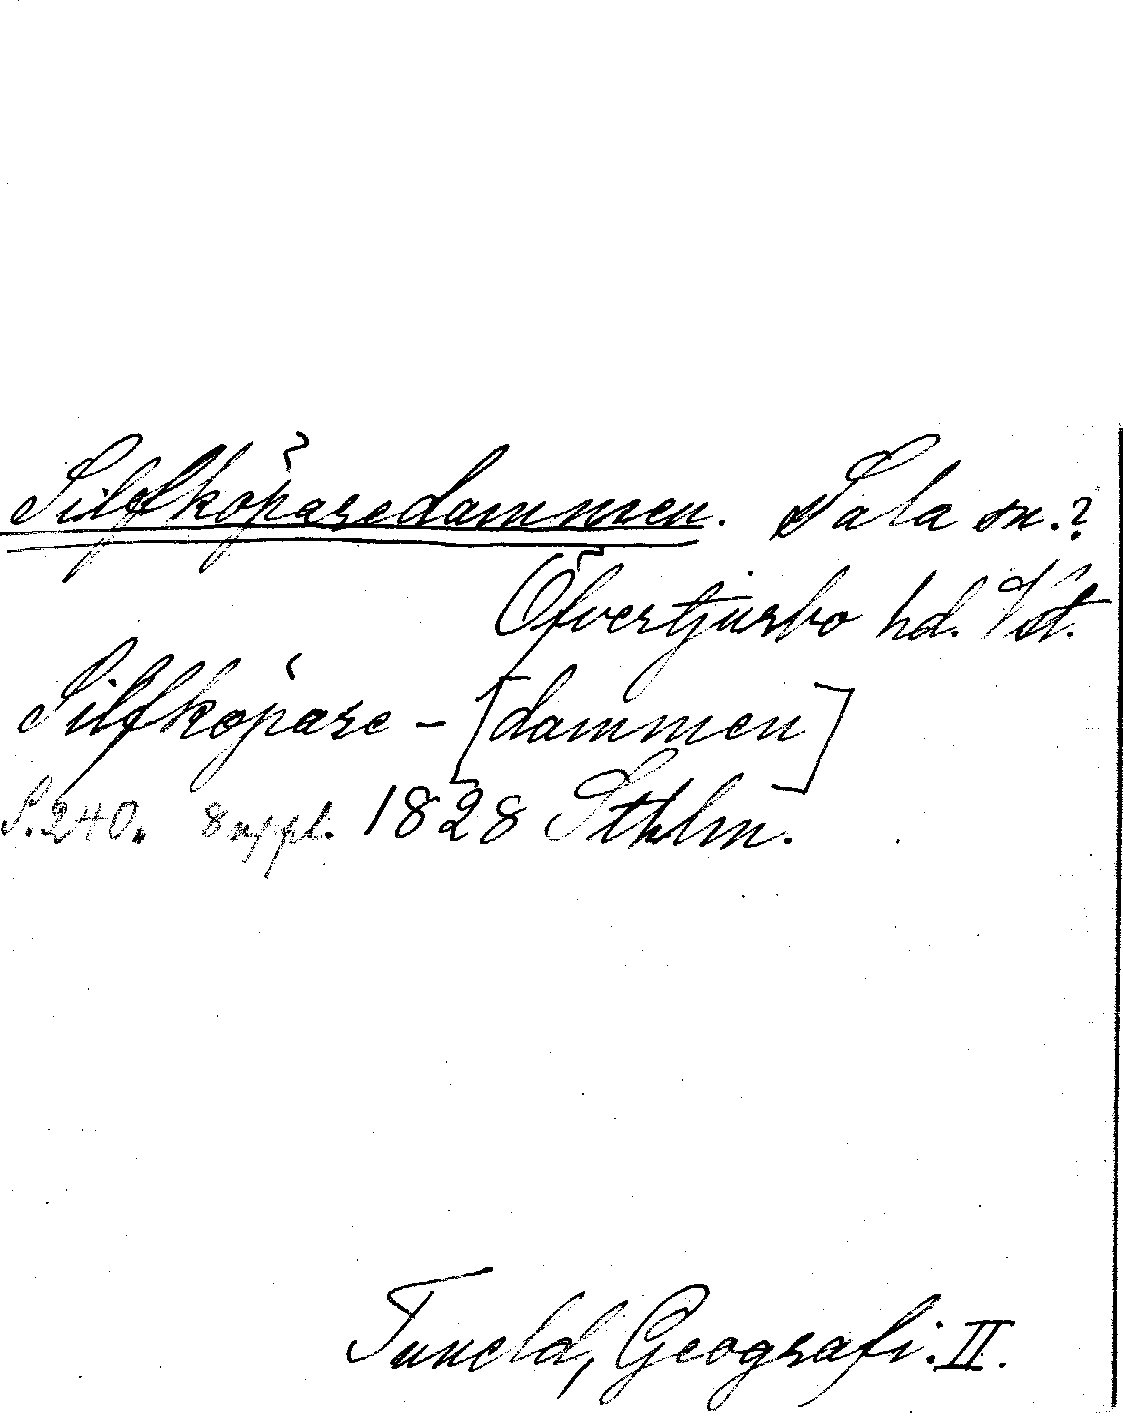 Silfköparedammen. Sala sn.?
Öfvertjurbo hd. Vst.
Silfköpare-[dammen]
S. 240. 8 uppl. 1828 Sthlm.
Tuneld, Geografi. II.